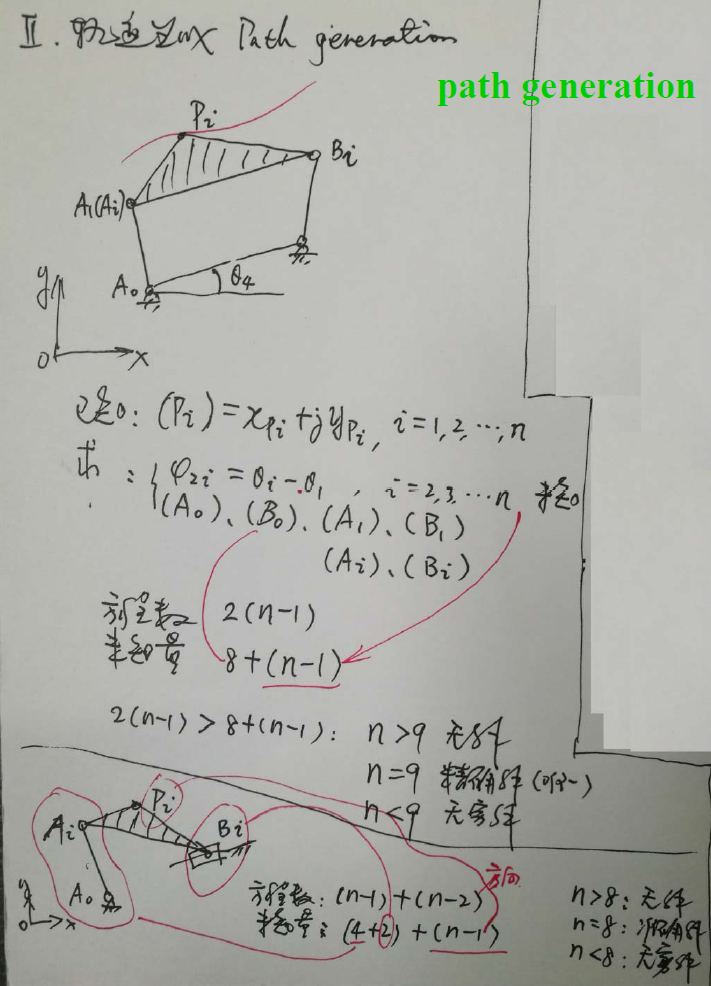 II. 轨迹 Path generation
path generation
Pi
Bi
A1(Ai)
A0
θ4
y
0
x
已知: (Pi) = xPi + jyPi, i=1,2,…,n
求: φ2i = θi - θ1, i=2,3…n 未知
(A0)、(B0)、(A1)、(B1)
(Ai)、(Bi)
方程数 2(n-1)
未知量 8+(n-1)
2(n-1) > 8+(n-1): n>9 无解
n=9 精确解(唯一)
n<9 无穷解
Pi
Ai
Bi
A0
y
0
x
方向
方程数: (n-1)+(n-2)
未知量: (4+2)+(n-1)
n>8: 无解
n=8: 准确解
n<8: 无穷解